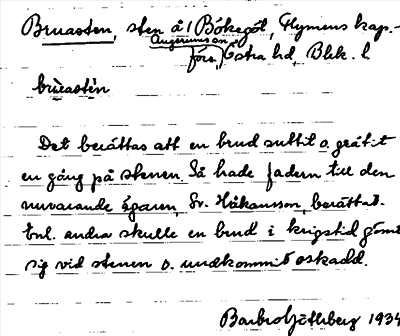 Bruasten, sten å 1 Bökegöl, Flymens kap.-
Augerums sn
förs., Östra hd, Blek. l.
brùastèn
Det berättas att en brud suttit o. gråtit
en gång på stenen. Så hade fadern till den
nuvarande ägaren, Sv. Håkansson, berättat.
Enl. andra skulle en brud i krigstid gömt
sig vid stenen o. undkommit oskadd.
Barbro Götlberg 1934